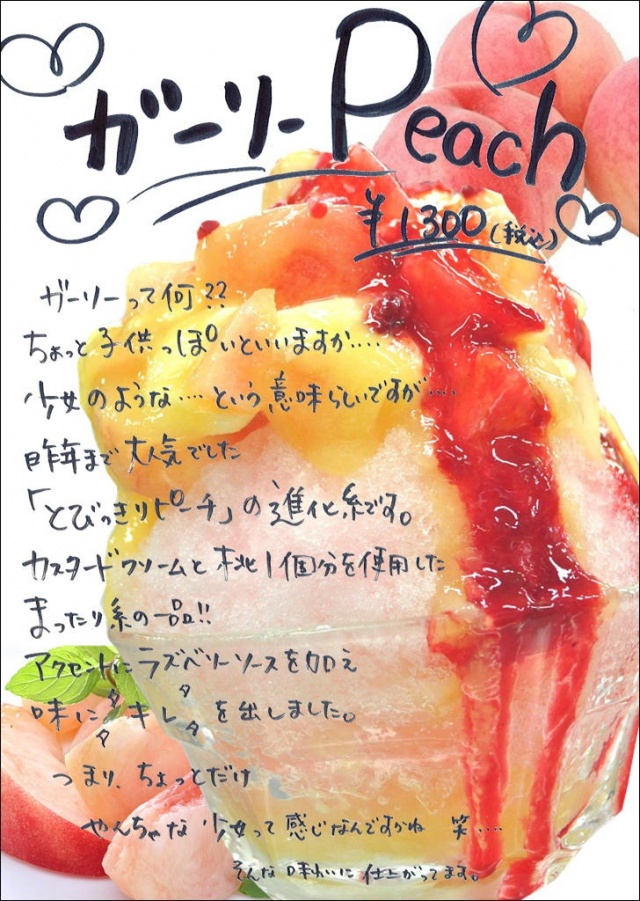 ガーリーPeach
¥1300(税込)
ガーリーって何??
ちょっと子供っぽいといいますか....
少女のような…という意味らしいですが....
昨年まで大人気でした
「とびっきりピーチ」の進化系です。
カスタードクリームと桃1個分を使用した
まったり系の一品!!
アクセントにラズベリーソースを加え
味にキレを出しました。
つまり、ちょっとだけ
やんちゃな少女って感じなんですかね 笑....
そんな味わいに仕上がってます。